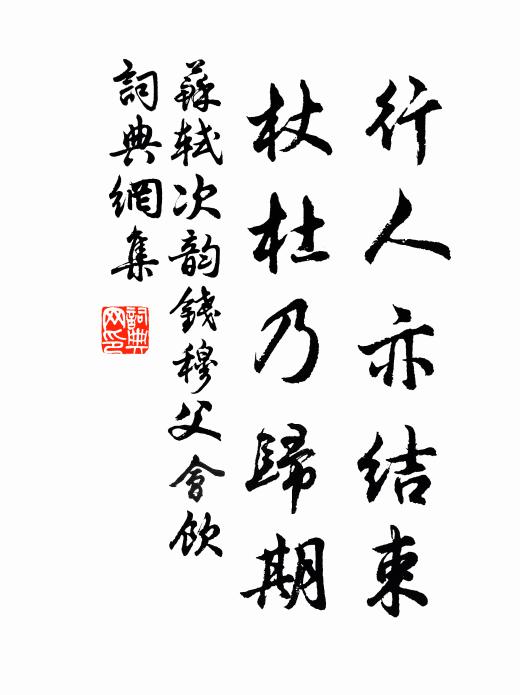 行人亦结束
杖杜乃歸期
蘇軾次韵錢穆父會飲
詞典網集
詞典网印